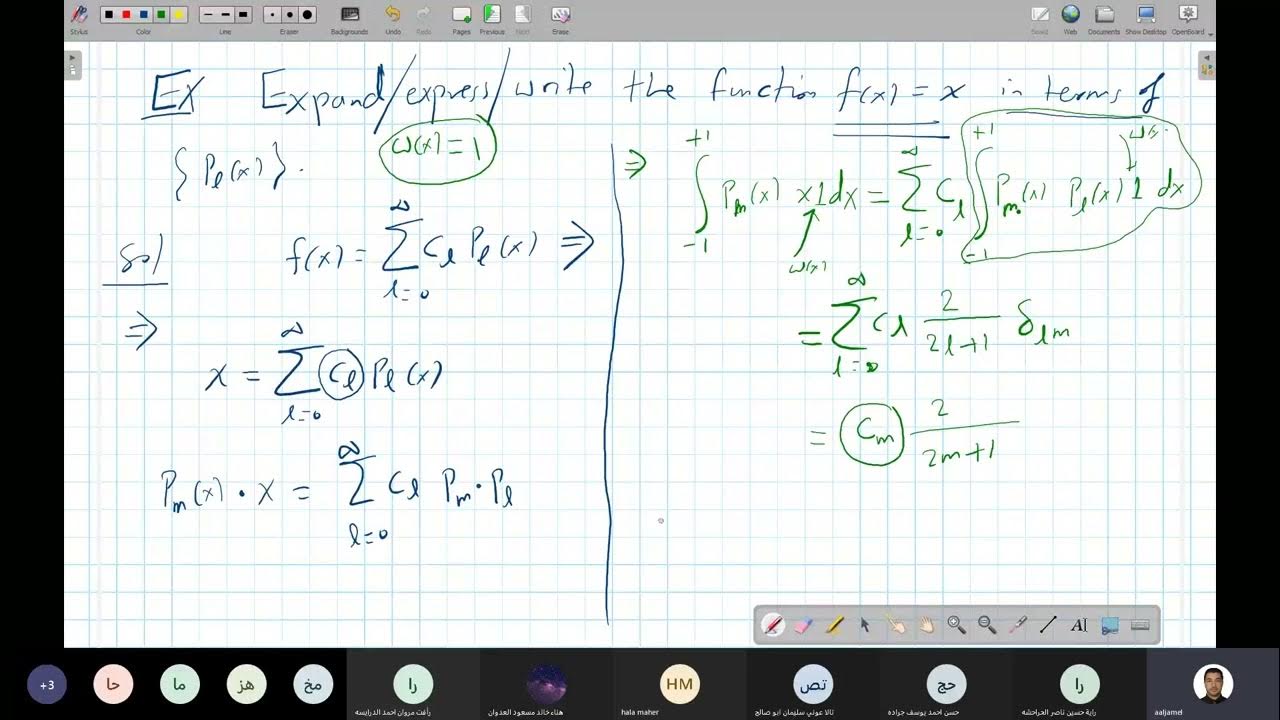 Stylus Color Line Eraser Backgrounds Undo Redo Pages Previous Next Erase Board Web Documents Show Desktop OpenBoard
EX Expand/express/write the function f(x) = x in terms of
{Pℓ(x)}.
w(x) = 1
Sol
f(x) = ∑_{ℓ=0}^{∞} Cℓ Pℓ(x) ⇒
⇒
x = ∑_{ℓ=0}^{∞} Cℓ Pℓ(x)
Pm(x) · x = ∑_{ℓ=0}^{∞} Cℓ Pm · Pℓ
⇒ ∫_{-1}^{+1} Pm(x) x 1 dx = ∑_{ℓ=0}^{∞} Cℓ ∫_{-1}^{+1} Pm(x) Pℓ(x) 1 dx
w(x)
= ∑_{ℓ=0}^{∞} Cℓ 2/(2ℓ+1) δℓm
= Cm 2/(2m+1)
+3 حا ما هز مخ را HM تص حج را
رأفت مروان احمد الدرايسه
هناء خالد مسعود العدوان
hala maher
تالا عوني سليمان ابو صالح
حسن احمد يوسف جراده
راية حسين ناصر الحراحشه
aaljamel